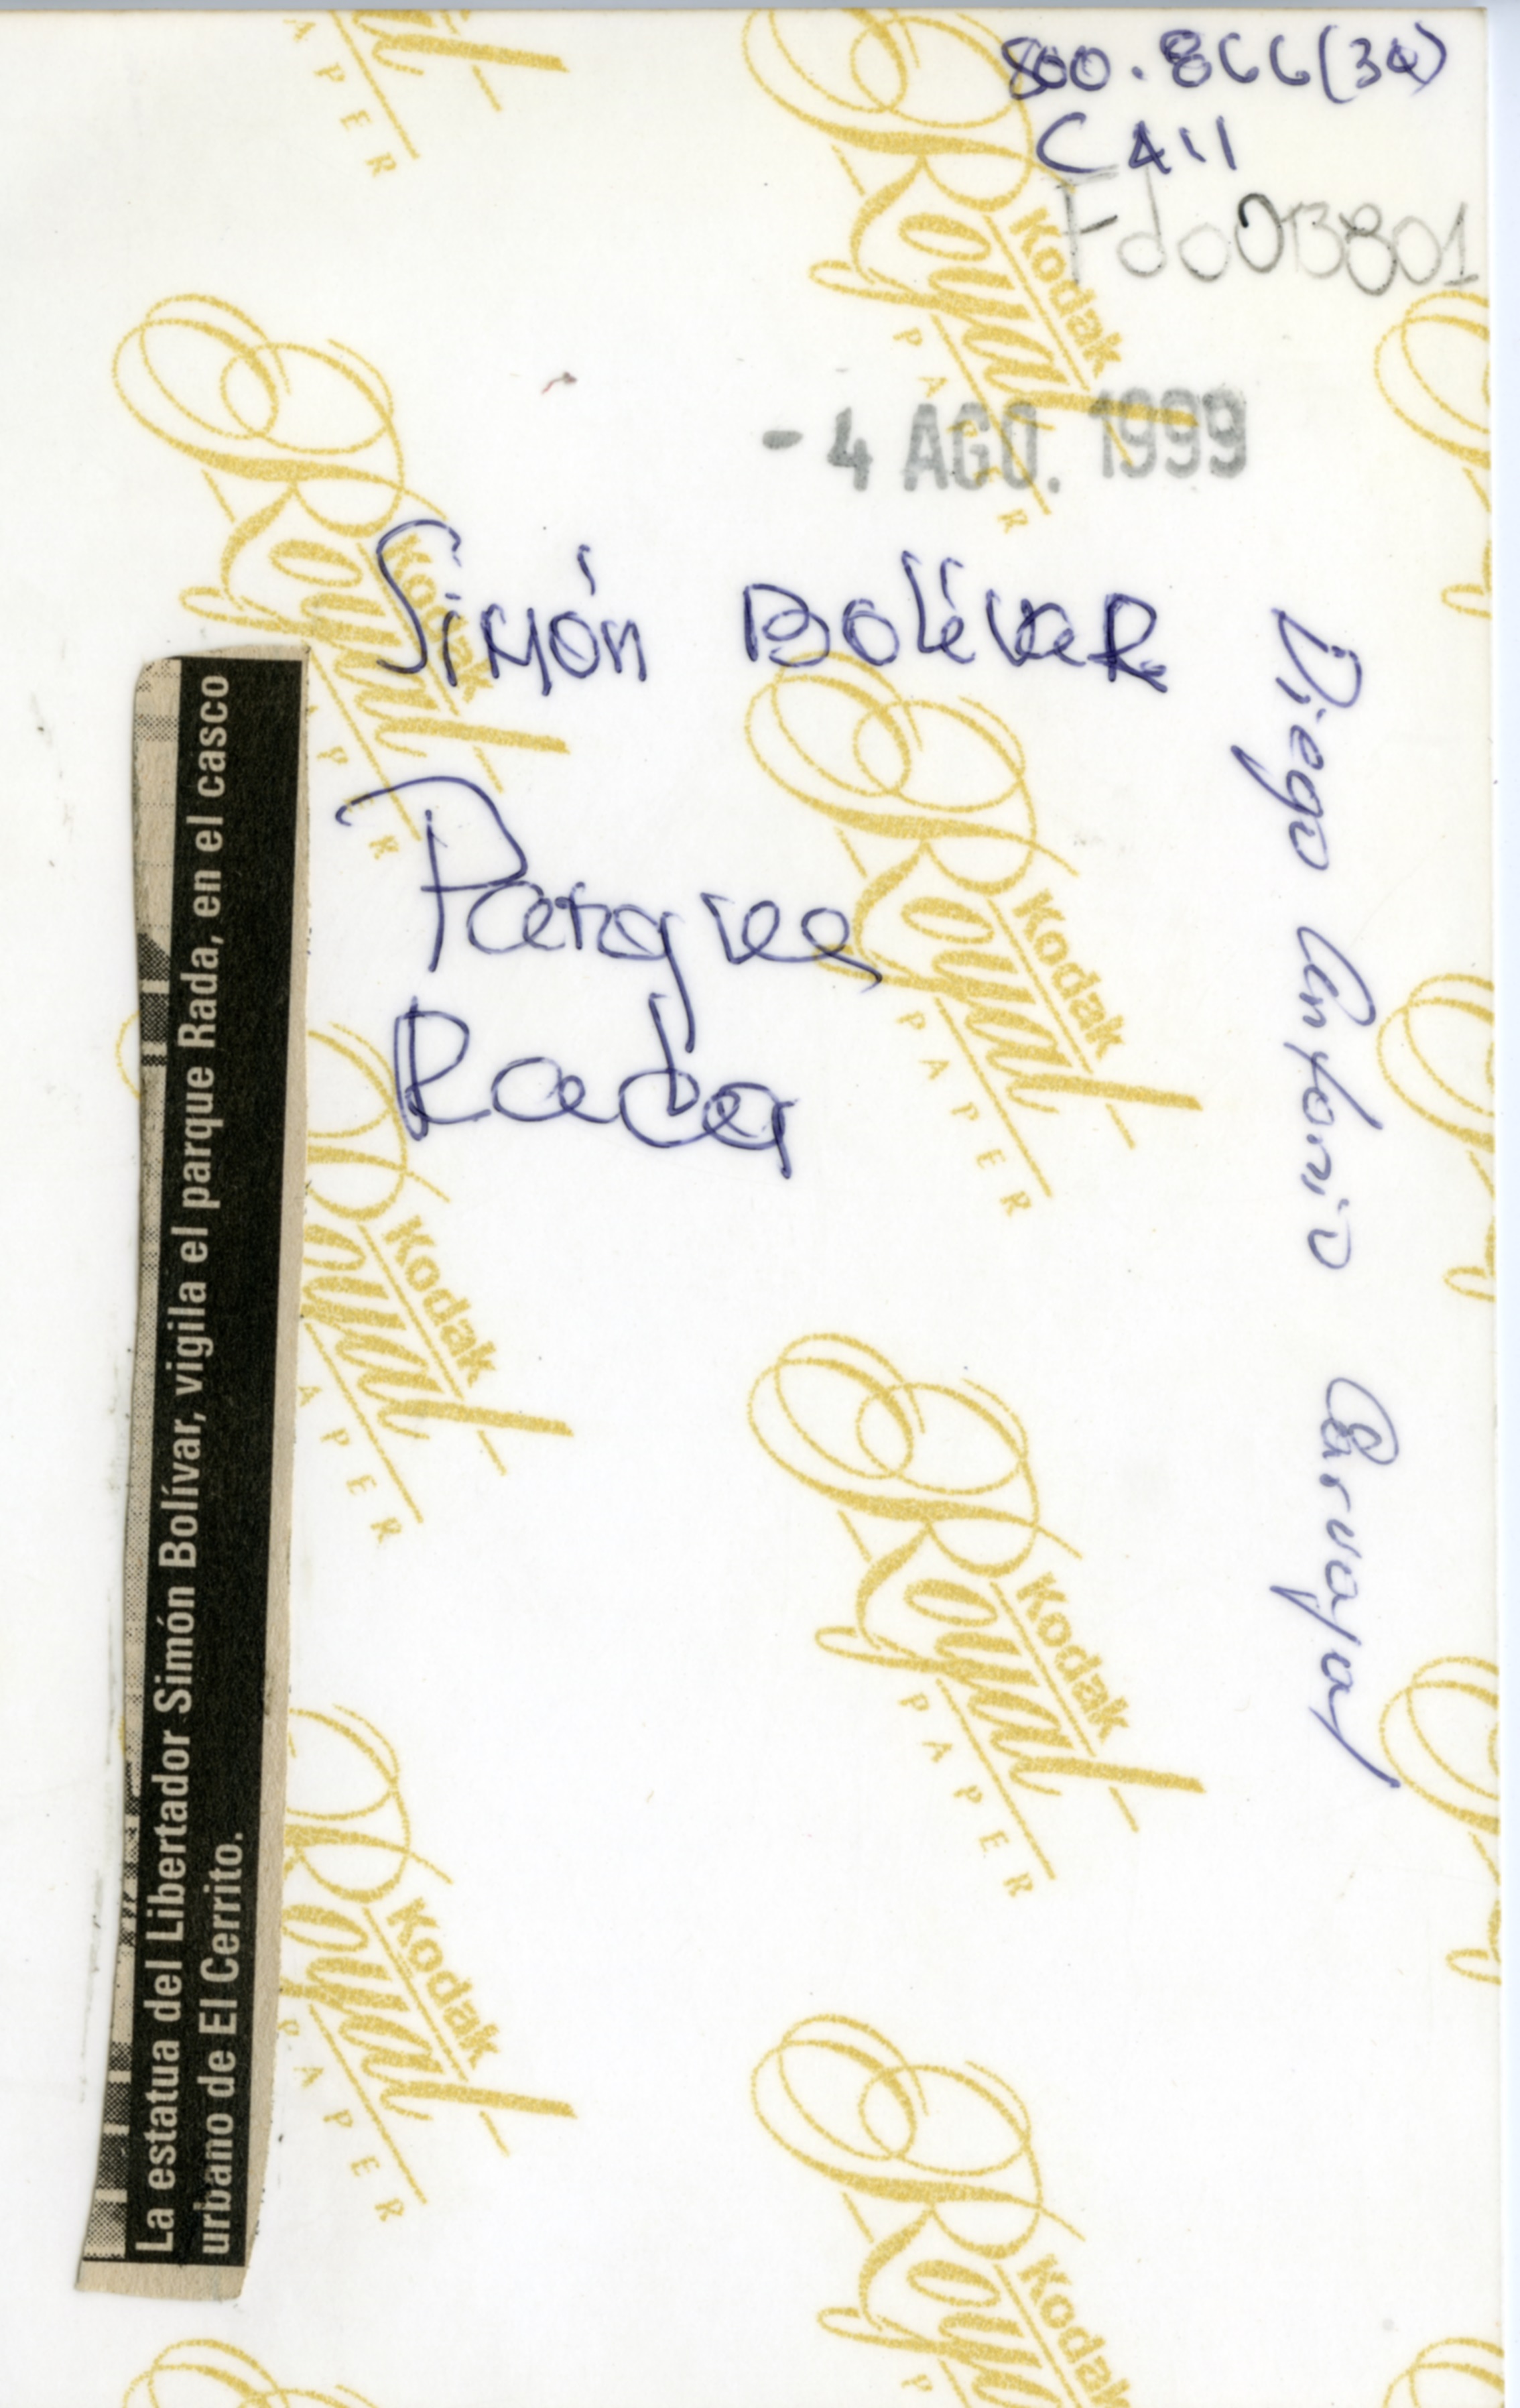 800.866(34)
CA11
Fdo013801
- 4 AGO. 1999
Simón Bolívar
Parque
Rada
Diego Antonio Carvajal
La estatua del Libertador Simón Bolívar, vigila el parque Rada, en el casco
urbano de El Cerrito.
Kodak
Royal
PAPER